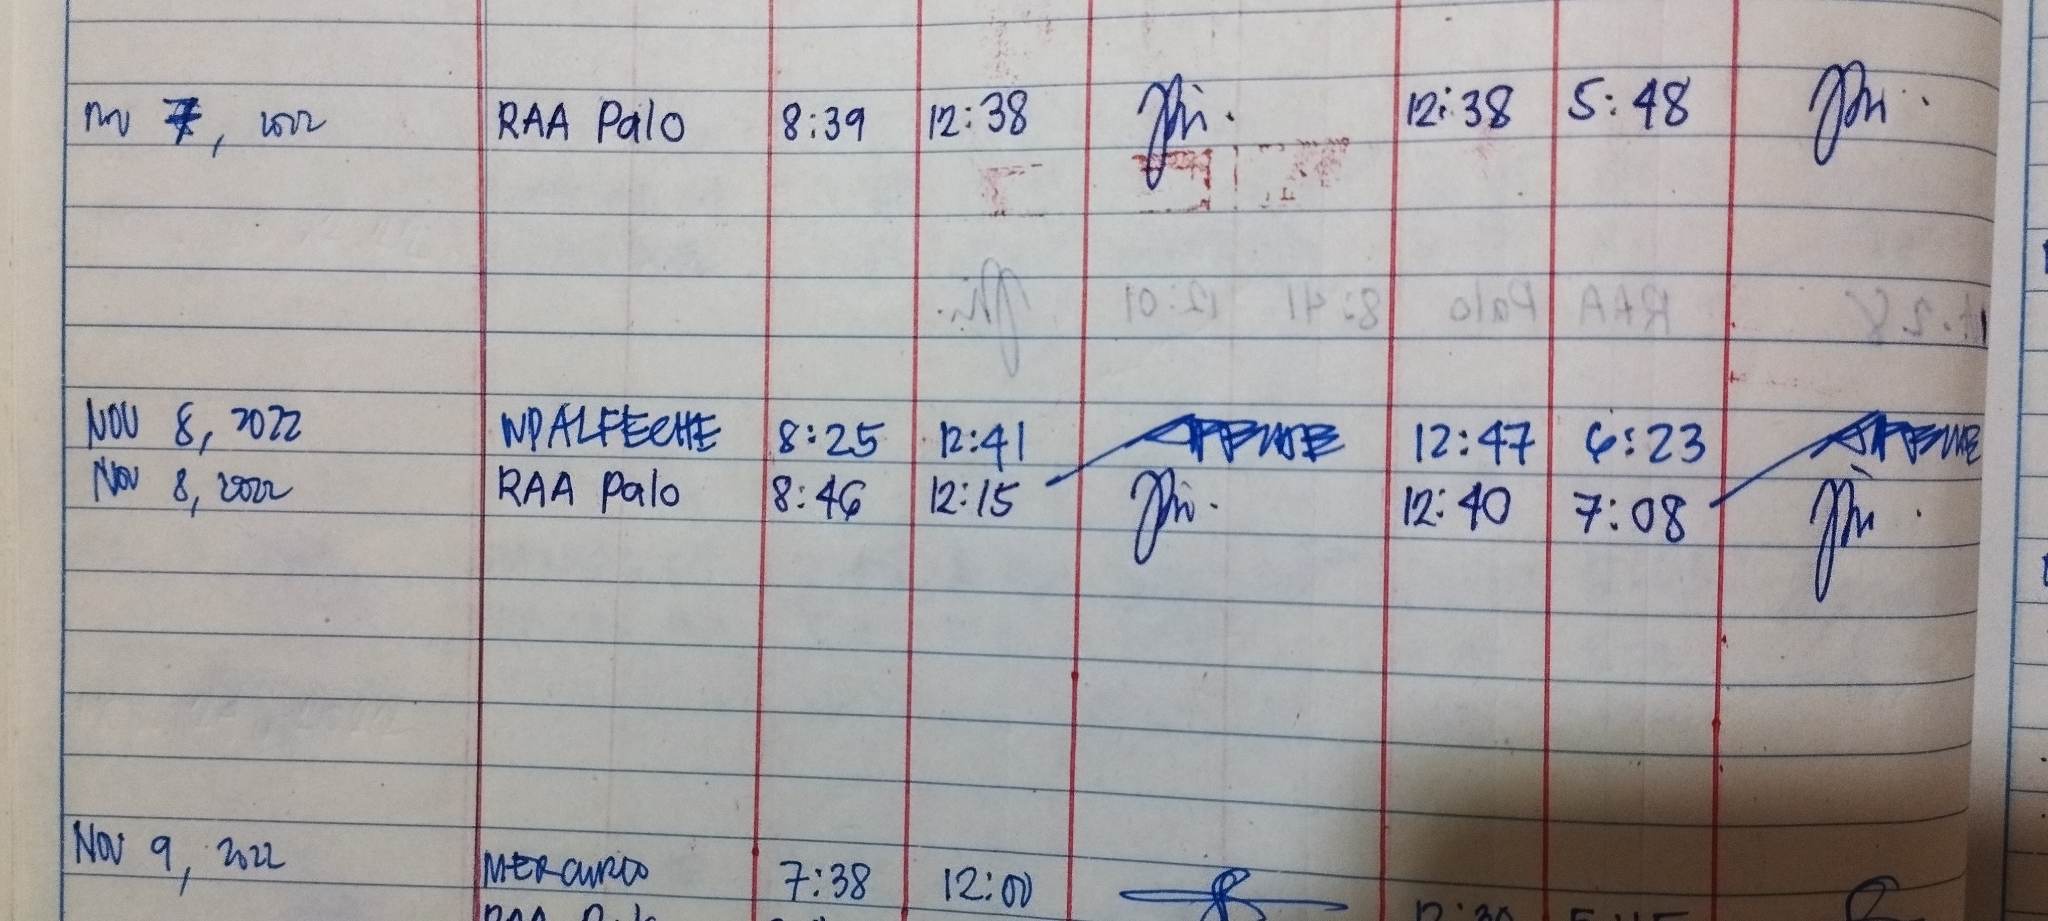 Nov 7, 2022 RAA Palo 8:39 12:38 12:38 5:48
NOV 8, 2022 NPALFECHE 8:25 12:41 12:47 6:23
Nov 8, 2022 RAA Palo 8:46 12:15 12:40 7:08
Nov 9, 2022 7:38 12:00
RAA Palo 12:30